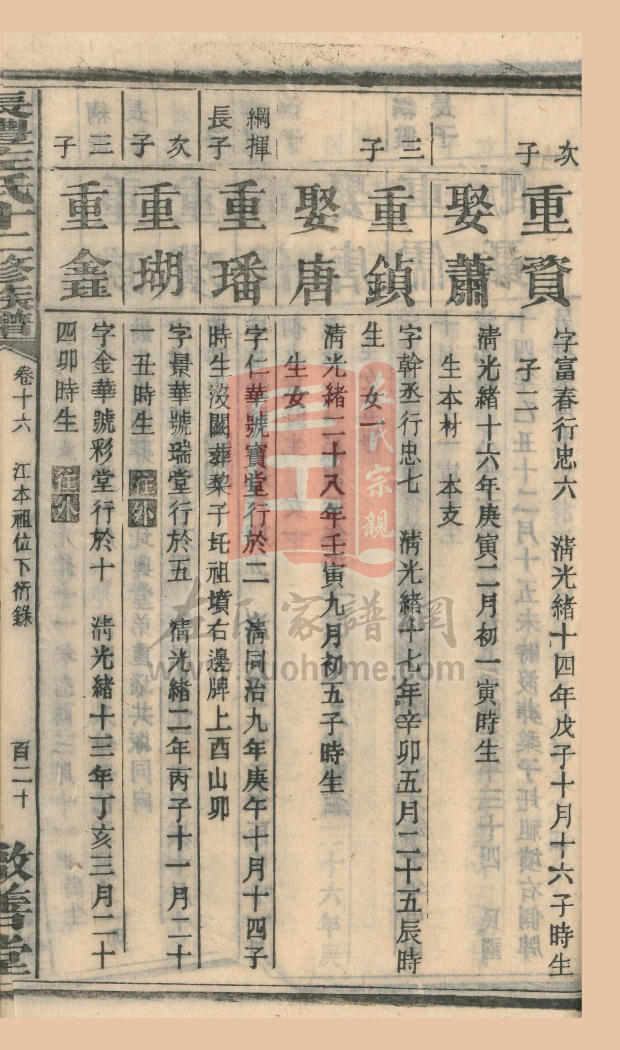 次子
重資
字富春行忠六　清光緒十四年戊子十月十六子時生
子二
娶蕭
清光緒十六年庚寅二月初一寅時生
生本材　本支
三子
重鎮
字幹丞行忠七　清光緒十七年辛卯五月二十五辰時
生　女一
娶唐
清光緒二十八年壬寅九月初五子時生
生女
綱揮長子
重璠
字仁華號寶堂行於二　清同治九年庚午十月十四子
時生沒闕葬棃子圫祖墳右邊牌上酉山卯
次子
重瑚
字景華號瑞堂行於五　清光緒二年丙子十一月二十
一丑時生　往外
三子
重鑫
字金華號彩堂行於十　清光緒十三年丁亥三月二十
四卯時生　往外
氏十二修族譜
卷十六　江本祖位下衍錄
百二十
敦善堂
左氏宗親
左氏家譜網